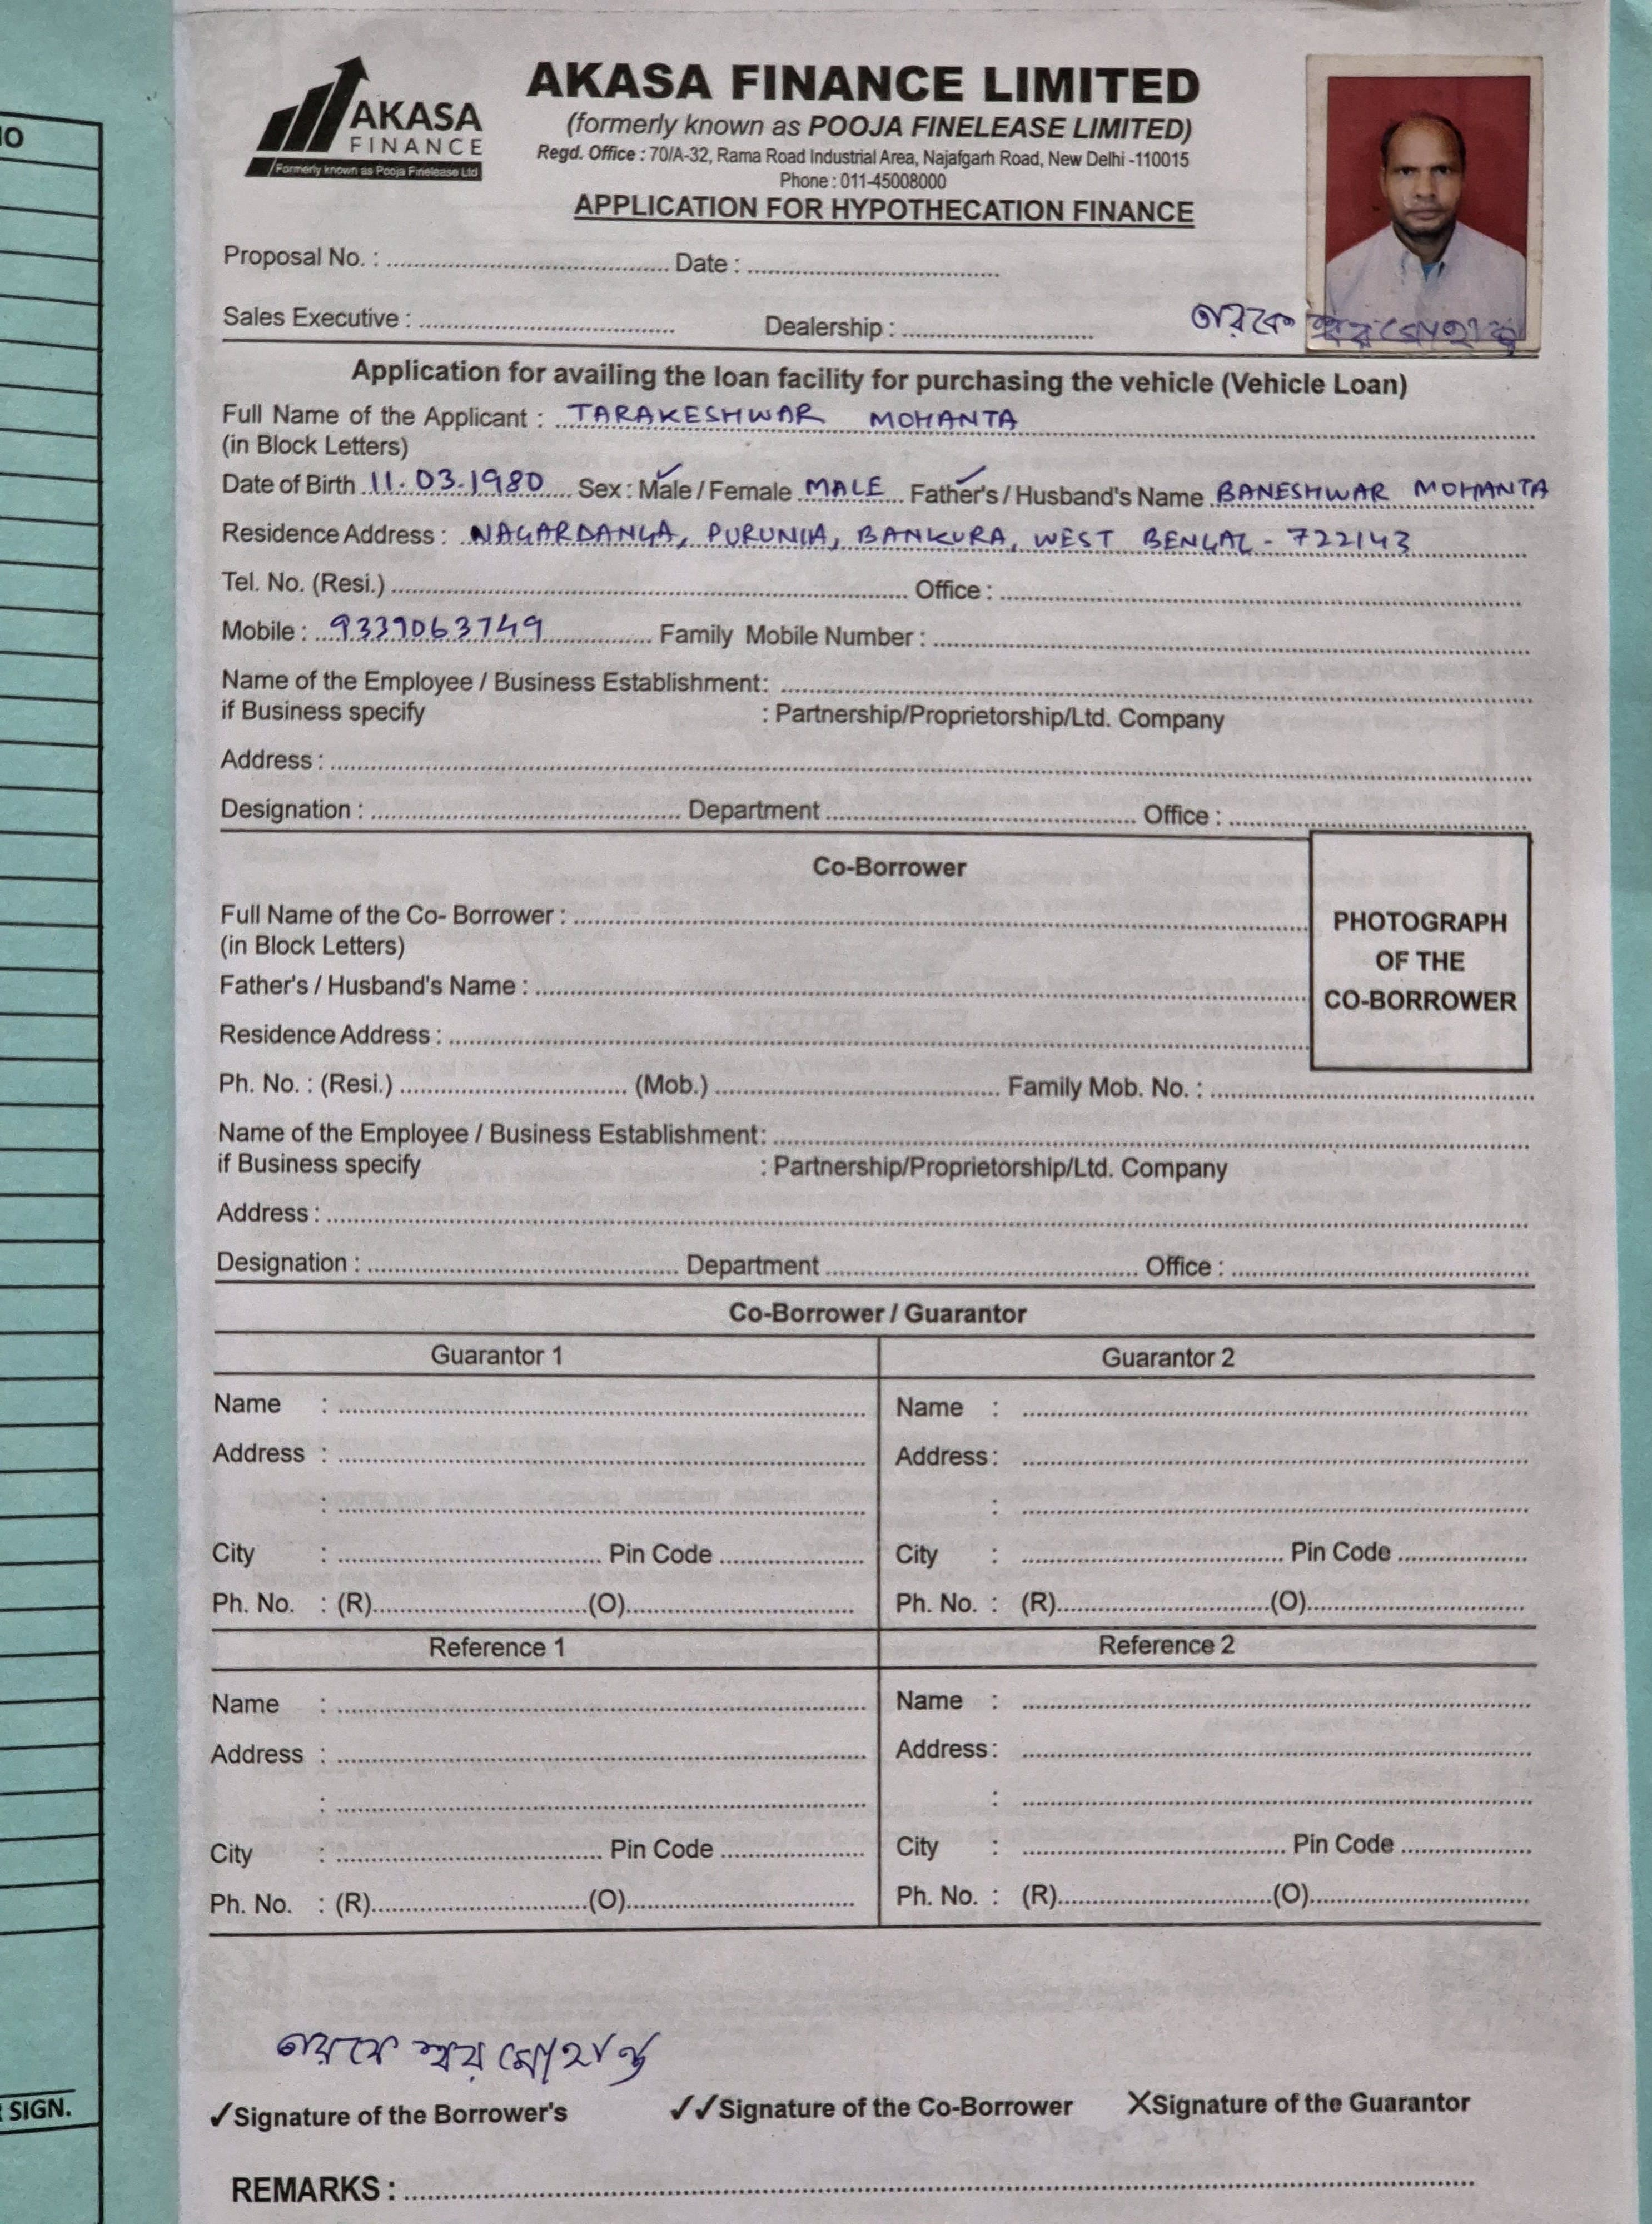 IO
AKASA
FINANCE
Formerly known as Pooja Finelease Ltd
AKASA FINANCE LIMITED
(formerly known as POOJA FINELEASE LIMITED)
Regd. Office : 70/A-32, Rama Road Industrial Area, Najafgarh Road, New Delhi -110015
Phone : 011-45008000
APPLICATION FOR HYPOTHECATION FINANCE
Proposal No. : Date :
Sales Executive : Dealership :
তারকেশ্বর মোহান্ত
Application for availing the loan facility for purchasing the vehicle (Vehicle Loan)
Full Name of the Applicant : TARAKESHWAR MOHANTA
(in Block Letters)
Date of Birth 11.03.1980 Sex : Male / Female MALE Father's / Husband's Name BANESHWAR MOHANTA
Residence Address : NAGARDANGA, PURUNIA, BANKURA, WEST BENGAL - 722143
Tel. No. (Resi.) Office :
Mobile : 9339063749 Family Mobile Number :
Name of the Employee / Business Establishment:
if Business specify : Partnership/Proprietorship/Ltd. Company
Address :
Designation : Department Office :
Co-Borrower
Full Name of the Co- Borrower :
(in Block Letters)
Father's / Husband's Name :
Residence Address :
PHOTOGRAPH
OF THE
CO-BORROWER
Ph. No. : (Resi.) (Mob.) Family Mob. No. :
Name of the Employee / Business Establishment:
if Business specify : Partnership/Proprietorship/Ltd. Company
Address :
Designation : Department Office :
Co-Borrower / Guarantor
Guarantor 1 Guarantor 2
Name : Name :
Address : Address :
: :
City : Pin Code City : Pin Code
Ph. No. : (R) (O) Ph. No. : (R) (O)
Reference 1 Reference 2
Name : Name :
Address : Address :
: :
City : Pin Code City : Pin Code
Ph. No. : (R) (O) Ph. No. : (R) (O)
তারকেশ্বর মোহান্ত
SIGN.
✓Signature of the Borrower's ✓✓Signature of the Co-Borrower XSignature of the Guarantor
REMARKS :